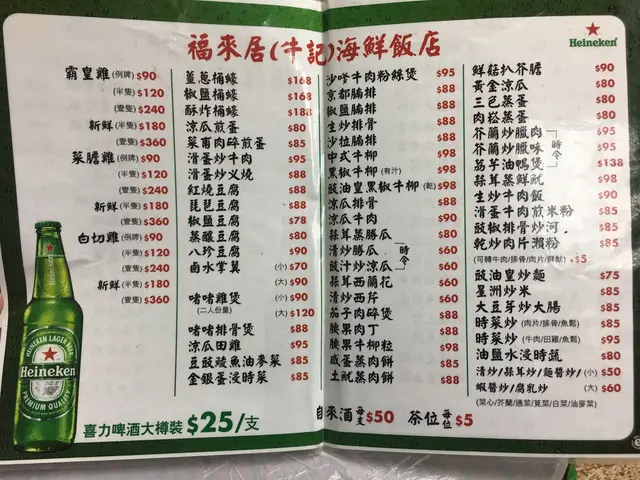 福來居(牛記)海鮮飯店
Heineken
霸皇雞(例牌) $90
(半隻) $120
(壹隻) $240
新鮮(半隻) $180
(壹隻) $360
菜膽雞(例牌) $90
(半隻) $120
(壹隻) $240
新鮮(半隻) $180
(壹隻) $360
白切雞(例牌) $90
(半隻) $120
(壹隻) $240
新鮮(半隻) $180
(壹隻) $360
薑蔥桶蠔 $168
椒鹽桶蠔 $168
酥炸桶蠔 $188
涼瓜煎蛋 $80
菜甫肉碎煎蛋 $85
滑蛋炒牛肉 $95
滑蛋炒叉燒 $88
紅燒豆腐 $88
琵琶豆腐 $88
椒鹽豆腐 $78
蒸釀豆腐 $80
八珍豆腐 $90
鹵水掌翼 (小) $70
(大) $90
啫啫雞煲 (小) $90
(二人份量) (大) $120
啫啫排骨煲 $88
涼瓜田雞 $95
豆豉鯪魚油麥菜 $85
金銀蛋浸時菜 $85
沙嗲牛肉粉絲煲 $95
京都腸排 $88
椒鹽腸排 $88
生炒排骨 $88
沙拉腸排 $88
中式牛柳 $98
黑椒牛柳(有汁) $98
豉油皇黑椒牛柳(乾) $98
涼瓜排骨 $88
涼瓜牛肉 $90
蒜茸蒸勝瓜 $80
清炒勝瓜 時令 $60
豉汁炒涼瓜 $60
蒜茸西蘭花 $60
清炒西芹 $60
茄子肉碎煲 $88
腰果肉丁 $88
腰果牛柳粒 $98
咸蛋蒸肉餅 $85
土魷蒸肉餅 $88
鮮菇扒芥膽 $90
黃金涼瓜 $80
三色蒸蛋 $80
肉崧蒸蛋 $80
芥蘭炒臘肉 $95
芥蘭炒臘味 時令 $95
茘芋油鴨煲 $138
蒜茸蒸鮮魷 $98
生炒牛肉飯 $90
滑蛋牛肉煎米粉 $85
豉椒排骨炒河 $85
乾炒肉片瀨粉 $85
(可轉牛肉/排骨/肉片/鮮魷) $5
豉油皇炒麵 $75
星洲炒米 $85
大豆芽炒大腸 $85
時菜炒 (肉片/排骨/魚鬆) $85
時菜炒 (牛肉/田雞/魚鬆) $95
油鹽水浸時蔬 $80
清炒/蒜茸炒/麵醬炒/ (小) $50
蝦醬炒/腐乳炒 (大) $60
(菜心/芥蘭/通菜/莧菜/白菜/油麥菜)
Heineken
HEINEKEN LAGER BEER
Heineken
PREMIUM QUALITY
喜力啤酒大樽裝 $25/支
自來酒每支 $50 茶位每位 $5